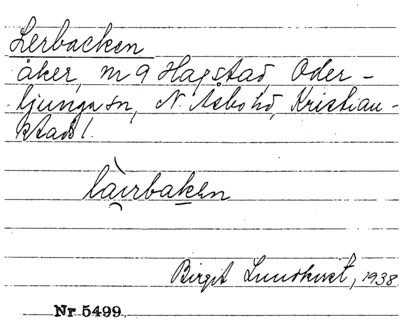 Lerbacken
åker, m 9 Hagstad, Oder-
ljunga sn, N. Åsbo hd, Kristian-
stads l.
làirbaken
Birgit Lundkvist, 1938
Nr 5499